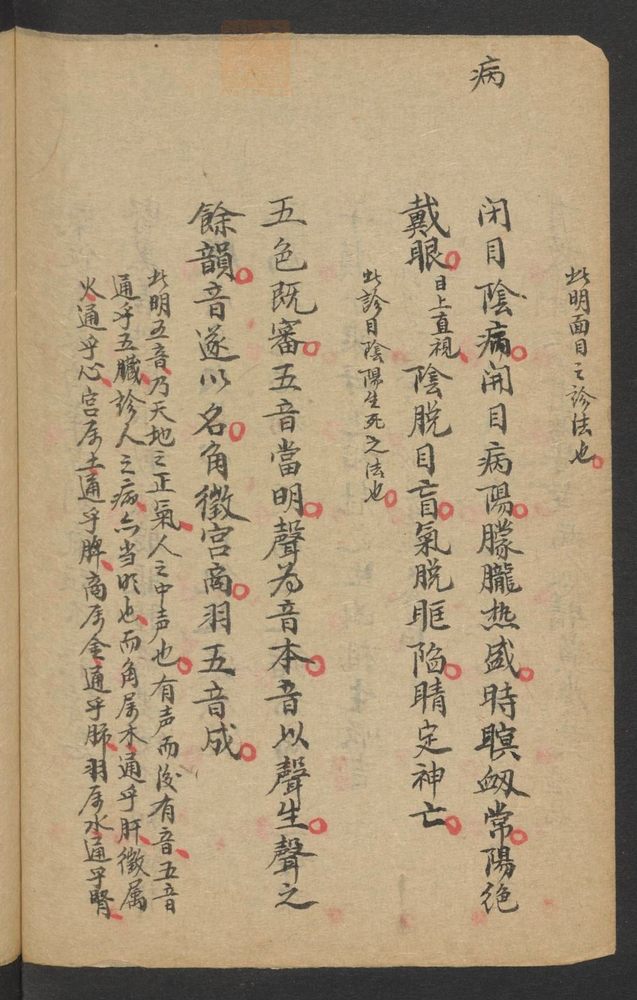 病
此明面目之診法也
闭目陰病闭目病陽朦朧热盛時瞑衂常陽绝
戴眼目上直視陰脱目盲氣脱眶陷睛定神亡
此診目陰陽生死之法也
五色既審五音當明聲为音本音以聲生聲之
餘韻音遂以名角徵宫商羽五音成
此明五音乃天地之正氣人之中声也有声而后有音五音
通乎五臓診人之病亦当明也而角属木通乎肝徵属
火通乎心宫属土通乎脾商属金通乎肺羽属水通乎腎